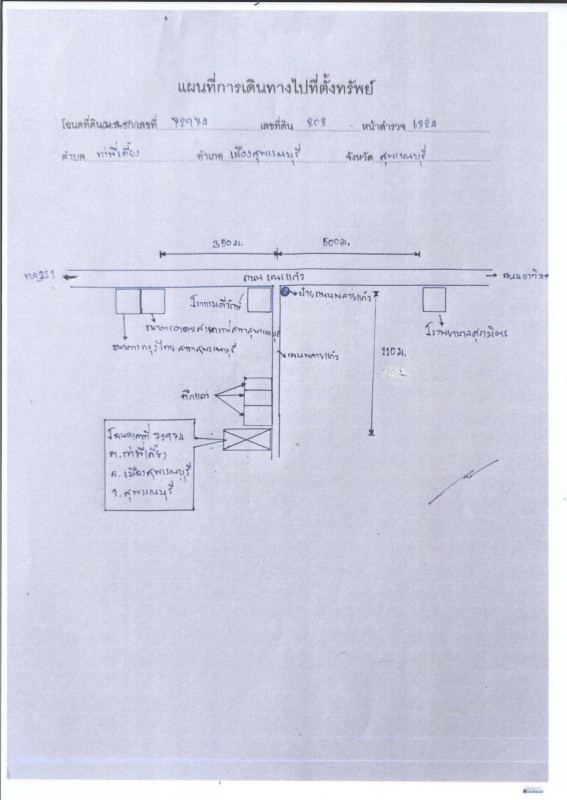 แผนที่การเดินทางไปที่ตั้งทรัพย์
โฉนดที่ดิน/น.ส.3ก/เลขที่ 72974 เลขที่ดิน 808 หน้าสำรวจ 6824
ตำบล ท่าพี่เลี้ยง อำเภอ เมืองสุพรรณบุรี จังหวัด สุพรรณบุรี
350 ม. 500 ม.
ถนน เณรแก้ว
ป้ายถนนพลายแก้ว
โรงพยาบาลศุภมิตร
ธนาคารกรุงไทย สาขาสุพรรณบุรี
ถนนพลายแก้ว
110 ม.
ตึกแถว
โฉนดเลขที่ 72974
ต. ท่าพี่เลี้ยง
อ. เมืองสุพรรณบุรี
จ. สุพรรณบุรี